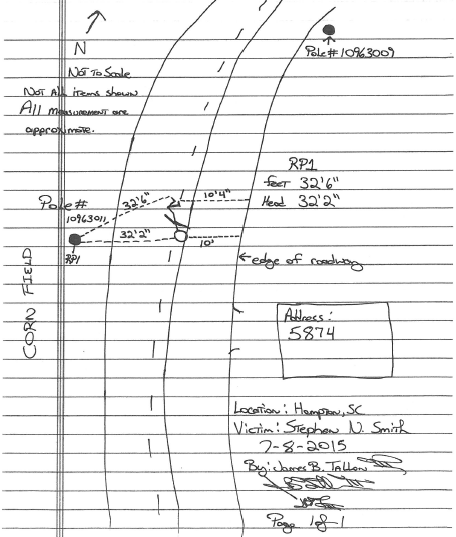 N
Pole# 10963009
Not To Scale
Not All items shown
All measurement are
approximate.
RP1
feet 32'6"
Head 32'2"
Pole#
10963011
32'6"
10'4"
32'2"
10'
RP1
edge of roadway
CORN FIELD
Address:
5874
Location: Hampton, SC
Victim: Stephen N. Smith
7-8-2015
By: James B. Tallon
Page 1 of 1